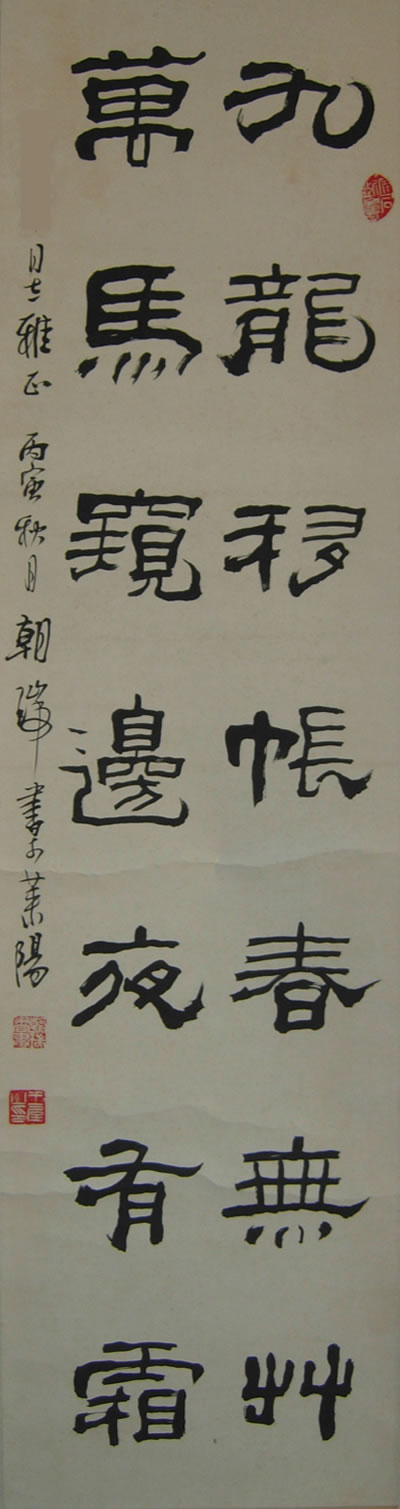 九龍移帳春無艸
萬馬窺邊夜有霜
雅正 丙寅秋月 朝瑞書于萊陽